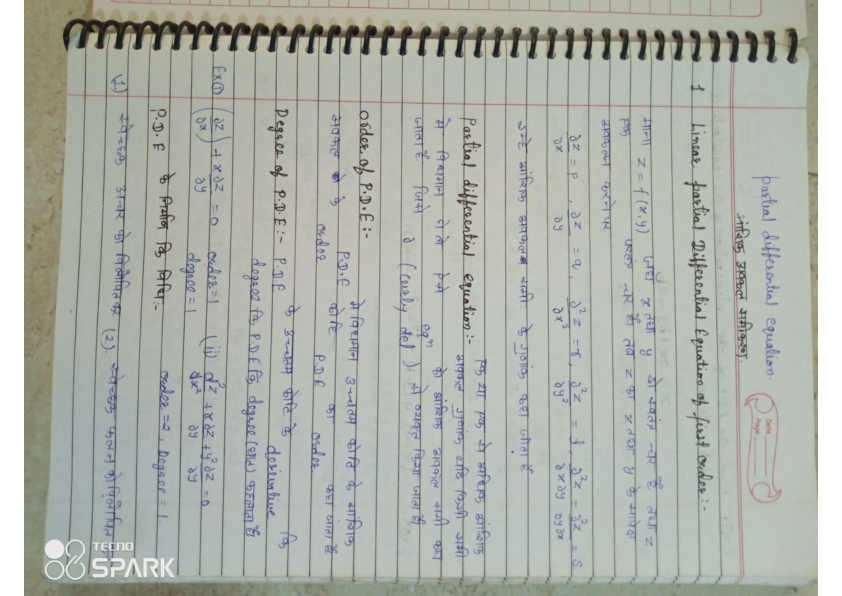 Date
Page
partial differential equation.
आंशिक अवकल समीकरण.
1 Linear partial Differential Equation of first order:-
माना z = f(x,y) जहां x तथा y दो स्वतंत्र चर है तथा z
एक परतंत्र चर है। तब z का x तथा y के सापेक्ष
अवकलन करने पर
∂z/∂x = p, ∂z/∂y = q, ∂²z/∂x² = r, ∂²z/∂y² = t, ∂²z/∂x∂y = ∂²z/∂y∂x = s
इन्हें आंशिक अवकलन समी के गुणांक कहा जाता है
Partial differential equation:- एक या एक से अधिक आंशिक
अवकल गुणांक यदि किसी समी
में विद्यमान हो तो ऐसे eqⁿ को आंशिक अवकल समी कहा
जाता है जिसे ∂ (curly del) से व्यक्त किया जाता है।
Order of P.D.E:- P.D.E में विद्यमान उच्चतम कोटि के आंशिक
अवकल के order कोटि P.D.E का order कहा जाता है
Degree of P.D.E:- P.D.E के उच्चतम कोटि के derivative कि
degree कि P.D.E कि degree (घात) कहलाता है
Ex① (∂z/∂x) + x∂z/∂y = 0 order=1 degree=1 (ii) ∂²z/∂x² + x∂z/∂y + y²∂z/∂y = 0
order=2, Degree=1
P.D.E के निर्माण कि विधि:-
1) स्वेच्छ अचर को विलोपित कर (2). स्वेच्छ फलन को विलोपित कर
TECNO
SPARK